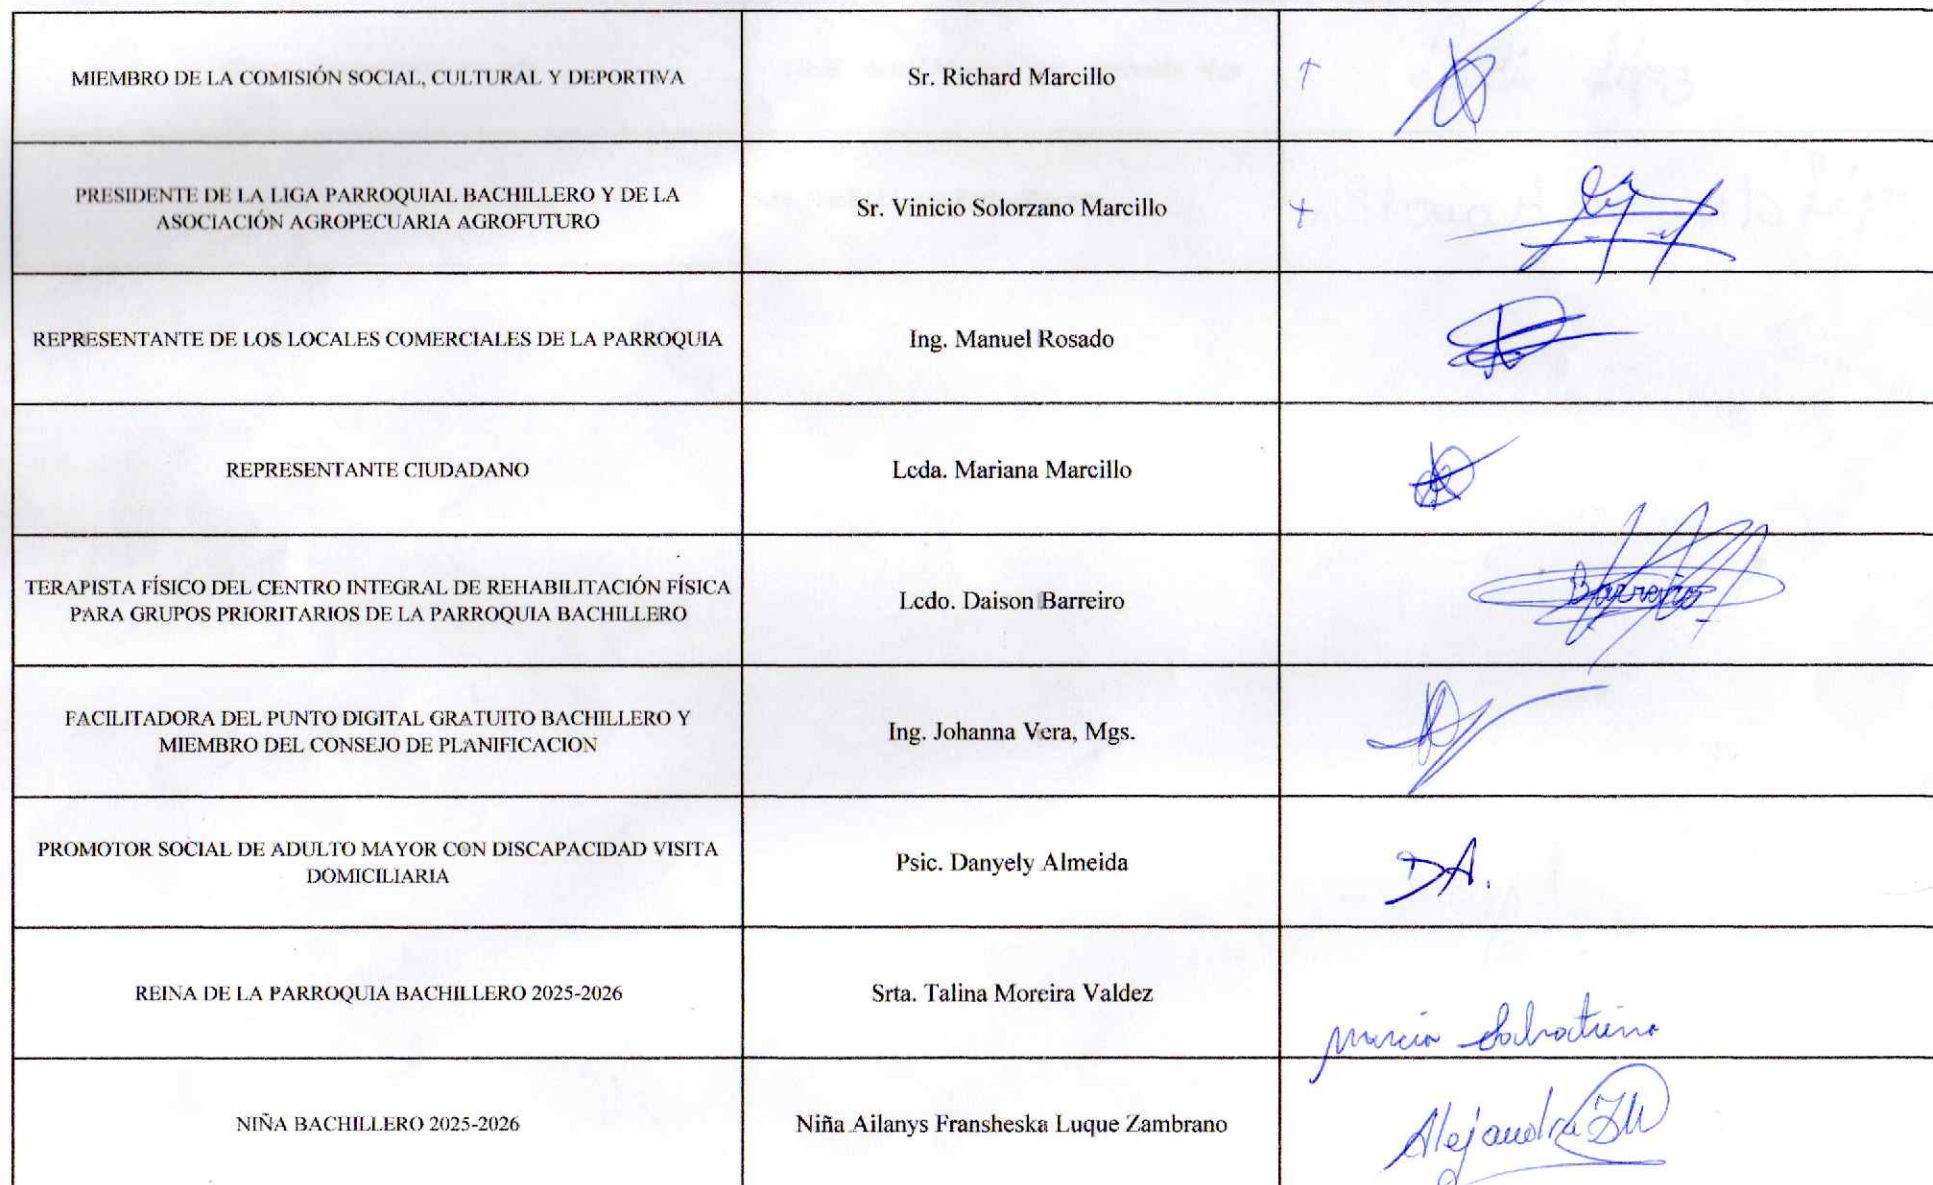 MIEMBRO DE LA COMISIÓN SOCIAL, CULTURAL Y DEPORTIVA
Sr. Richard Marcillo
PRESIDENTE DE LA LIGA PARROQUIAL BACHILLERO Y DE LA
ASOCIACIÓN AGROPECUARIA AGROFUTURO
Sr. Vinicio Solorzano Marcillo
REPRESENTANTE DE LOS LOCALES COMERCIALES DE LA PARROQUIA
Ing. Manuel Rosado
REPRESENTANTE CIUDADANO
Lcda. Mariana Marcillo
TERAPISTA FÍSICO DEL CENTRO INTEGRAL DE REHABILITACIÓN FÍSICA
PARA GRUPOS PRIORITARIOS DE LA PARROQUIA BACHILLERO
Lcdo. Daison Barreiro
Barreiro
FACILITADORA DEL PUNTO DIGITAL GRATUITO BACHILLERO Y
MIEMBRO DEL CONSEJO DE PLANIFICACION
Ing. Johanna Vera, Mgs.
PROMOTOR SOCIAL DE ADULTO MAYOR CON DISCAPACIDAD VISITA
DOMICILIARIA
Psic. Danyely Almeida
DA.
REINA DE LA PARROQUIA BACHILLERO 2025-2026
Srta. Talina Moreira Valdez
NIÑA BACHILLERO 2025-2026
Niña Ailanys Fransheska Luque Zambrano
Alejandra